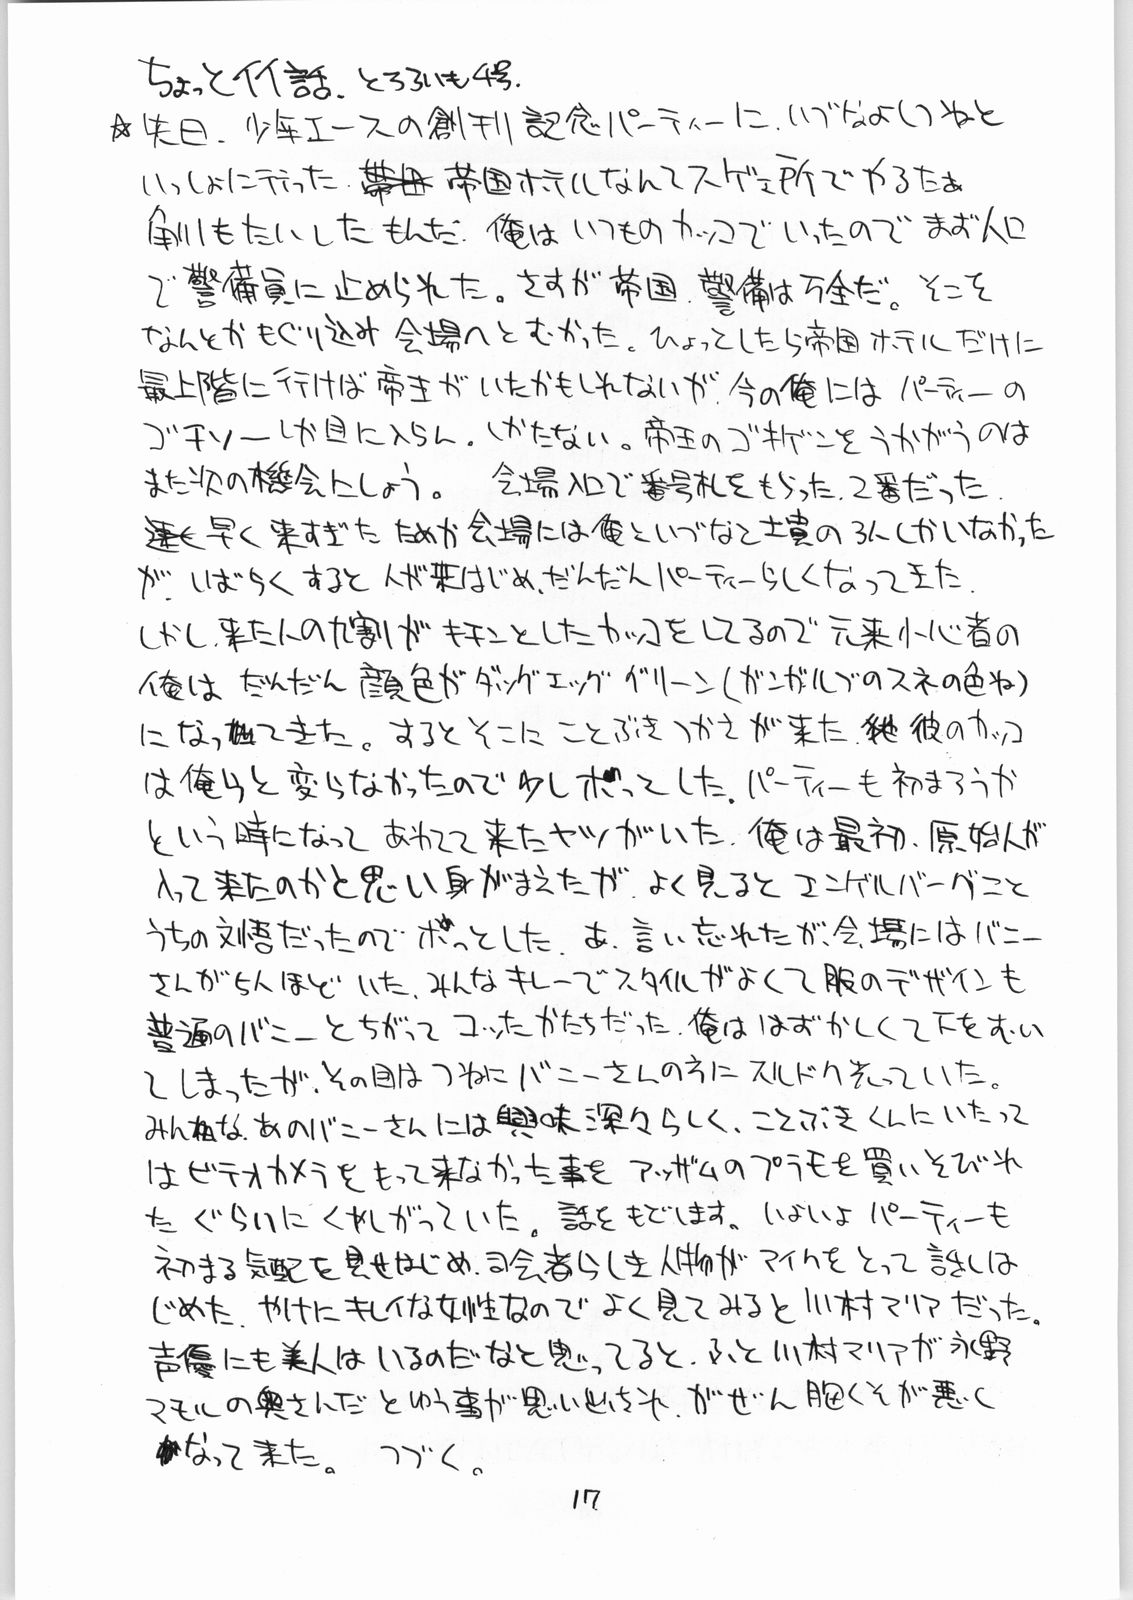 ちょっとイイ話、とろろいも4号.
☆先日、少年エースの創刊記念パーティーに、いづなよしつねと
いっしょに行った. 帝国ホテルなんてスゲェ所でやるたぁ
角川もたいしたもんだ. 俺はいつものカッコでいったのでまず入口
で警備員に止められた。さすが帝国、警備は万全だ。そこを
なんとかもぐり込み会場へとむかった。ひょっとしたら帝国ホテルだけに
最上階に行けば帝王がいたかもしれないが、今の俺にはパーティーの
ゴチソーしか目に入らん. しかたない。帝王のゴキゲンをうかがうのは
また次の機会にしよう。 会場入口で番号札をもらった、2番だった.
早く来すぎたためか会場には俺といづなと土貴の3人しかいなかった
が、しばらくすると人が来はじめ、だんだんパーティーらしくなってきた.
しかし、来た人の九割がキチンとしたカッコをしてるので元来小心者の
俺はだんだん顔色がダックエッググリーン(ガンガルブのスネの色ね)
になってきた。するとそこにことぶきつかさが来た. 彼のカッコ
は俺らと変らなかったので少しホッてした. パーティーも初まろうか
という時になってあわてて来たヤツがいた. 俺は最初、原始人が
入って来たのかと思い身がまえたが、よく見るとエンゲルバーグこと
うちの文悟だったのでホッとした. あ、言い忘れたが、会場にはバニー
さんが5人ほどいた、みんなキレーでスタイルがよくて服のデザインも
普通のバニーとちがってコッたかたちだった. 俺ははずかしくて下をむい
てしまったが、その目はつねにバニーさんの方にスルドク光っていた。
みんな、あのバニーさんには興味深々らしく、ことぶきくんにいたって
はビデオカメラをもって来なかった事をアッザムのプラモを買いそびれ
たぐらいにくやしがっていた。話をもどします。いよいよパーティーも
初まる気配を見せはじめ、司会者らしき人物がマイクをとって話しは
じめた. やけにキレイな女性なのでよく見てみると川村マリアだった。
声優にも美人はいるのだなと思ってると、ふと川村マリアが永野
マモルの奥さんだとゆう事が思い出され、がぜん胸くそが悪く
なって来た。 つづく。
17